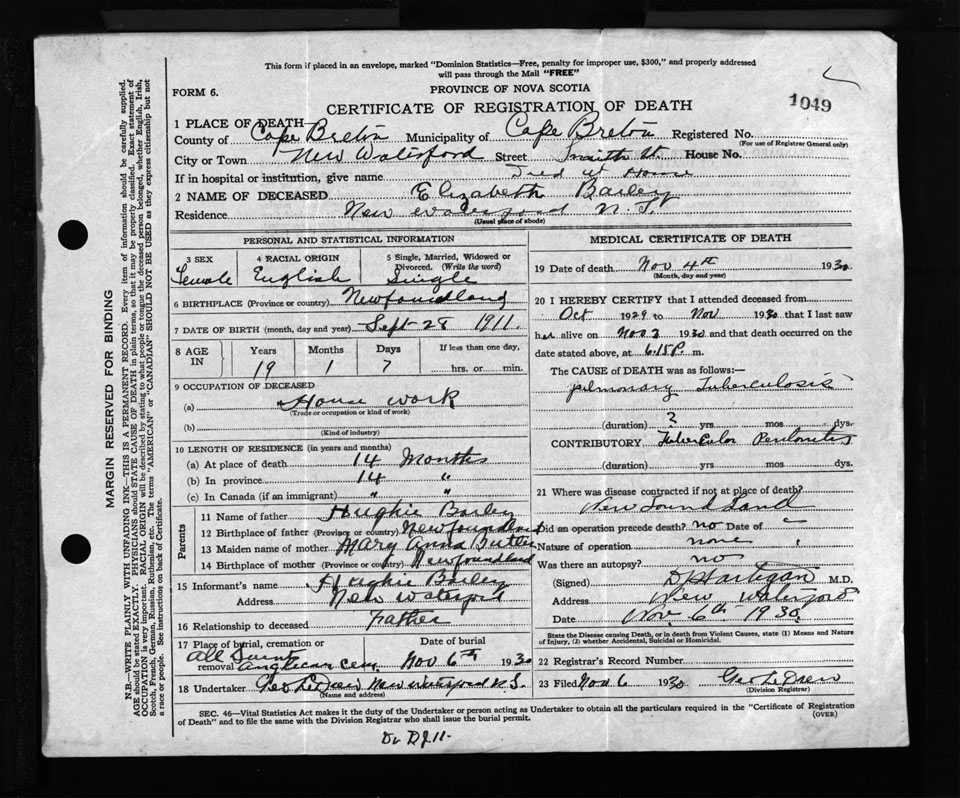 This form if placed in an envelope, marked "Dominion Statistics—Free, penalty for improper use, $300," and properly addressed
will pass through the Mail "FREE"
FORM 6.
PROVINCE OF NOVA SCOTIA
1049
CERTIFICATE OF REGISTRATION OF DEATH
1 PLACE OF DEATH
County of Cape Breton Municipality of Cape Breton Registered No.
(For use of Registrar General only)
City or Town New Waterford Street Smith St. House No.
If in hospital or institution, give name Died at Home
2 NAME OF DECEASED Elizabeth Bailey
Residence New Waterford N.S.
(Usual place of abode)
PERSONAL AND STATISTICAL INFORMATION
3 SEX Female
4 RACIAL ORIGIN English
5 Single, Married, Widowed or Divorced. (Write the word) Single
6 BIRTHPLACE (Province or country) Newfoundland
7 DATE OF BIRTH (month, day and year) Sept 28 1911.
8 AGE IN
Years Months Days If less than one day,
19 1 7 hrs. or min.
9 OCCUPATION OF DECEASED
(a) House work
(Trade or occupation or kind of work)
(b)
(Kind of industry)
10 LENGTH OF RESIDENCE (in years and months)
(a) At place of death 14 Months
(b) In province 14 "
(c) In Canada (if an immigrant) " "
Parents
11 Name of father Hughie Bailey
12 Birthplace of father (Province or country) Newfoundland
13 Maiden name of mother Mary Anna Butler
14 Birthplace of mother (Province or country) Newfoundland
15 Informant's name Hughie Bailey
Address New Waterford
16 Relationship to deceased Father
17 Place of burial, cremation or removal All Saints Anglican Cem. Date of burial Nov 6th 1930
18 Undertaker Geo LeDrew New Waterford N.S.
(Name and address)
MEDICAL CERTIFICATE OF DEATH
19 Date of death Nov 4th 1930
(Month, day and year)
20 I HEREBY CERTIFY that I attended deceased from
Oct 1929 to Nov 1930 that I last saw
her alive on Nov 3 1930 and that death occurred on
date stated above, at 6.15 P. m.
The CAUSE of DEATH was as follows:—
Pulmonary Tuberculosis
(duration) ? yrs mos dys.
CONTRIBUTORY Tubercular Peritonitis
(duration) yrs mos dys.
21 Where was disease contracted if not at place of death?
Newfoundland
Did an operation precede death? no Date of -
Nature of operation none
Was there an autopsy? no
(Signed) D Hartigan M.D.
Address New Waterford
Date Nov 6th 1930
State the Disease causing Death, or in death from Violent Causes, state (1) Means and Nature
of Injury, (2) whether Accidental, Suicidal or Homicidal.
22 Registrar's Record Number
23 Filed Nov 6 1930 Geo LeDrew
(Division Registrar)
SEC. 46—Vital Statistics Act makes it the duty of the Undertaker or person acting as Undertaker to obtain all the particulars required in the "Certificate of Registration
of Death" and to file the same with the Division Registrar who shall issue the burial permit.
(OVER)
MARGIN RESERVED FOR BINDING
N.B.—WRITE PLAINLY WITH UNFADING INK—THIS IS A PERMANENT RECORD. Every item of information should be carefully supplied.
AGE should be stated EXACTLY. PHYSICIANS should STATE CAUSE OF DEATH in plain terms, so that it may be properly classified. Exact statement of
OCCUPATION is very important. RACIAL ORIGIN will be described by stating to what people or tongue the deceased person belonged, whether English, Irish,
Scotch, French, German, Russian, Ruthenian, etc. The terms "AMERICAN" or "CANADIAN" SHOULD NOT BE USED as they express citizenship but not
a race or people. See instructions on back of Certificate.